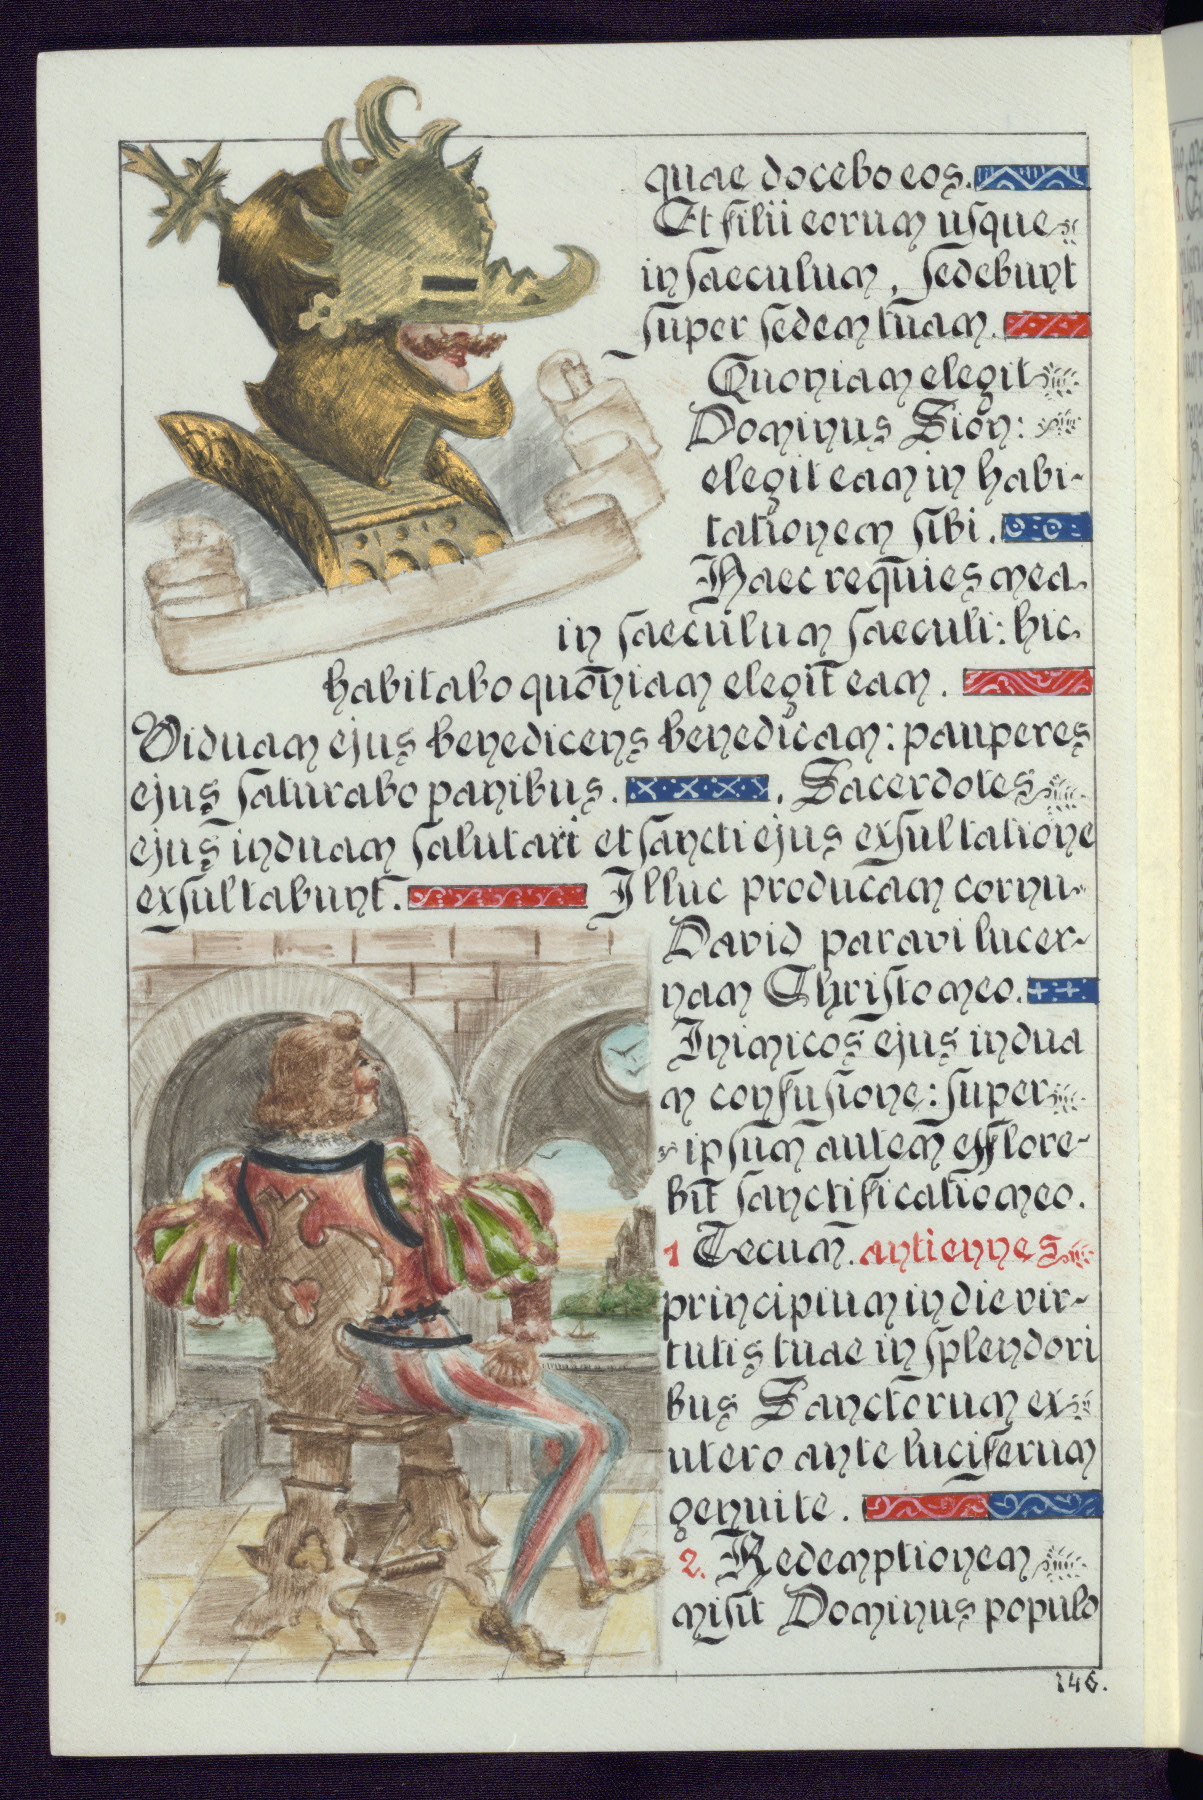 quae docebo eos.
Et filii eorum usque
in saeculum, sedebunt
super sedem tuam.
Quoniam elegit
Dominus Sion:
elegit eam in habi-
tationem sibi.
Haec requies mea
in saeculum saeculi: hic
habitabo quoniam elegit eam.
Viduam ejus benedicens benedicam: pauperes
ejus saturabo panibus. Sacerdotes
ejus induam salutari et sancti ejus exsultatione
exsultabunt. Illuc producam cornu
David paravi lucer-
nam Christo meo.
Inimicos ejus indua
m confusione: super
ipsum autem efflore-
bit sanctificatio meo.
1 Tecum. antiennes
principium in die vir-
tutis tuae in splendori
bus Sanctorum ex
utero ante luciferum
genuite.
2. Redemptionem
misit Dominus populo
146.